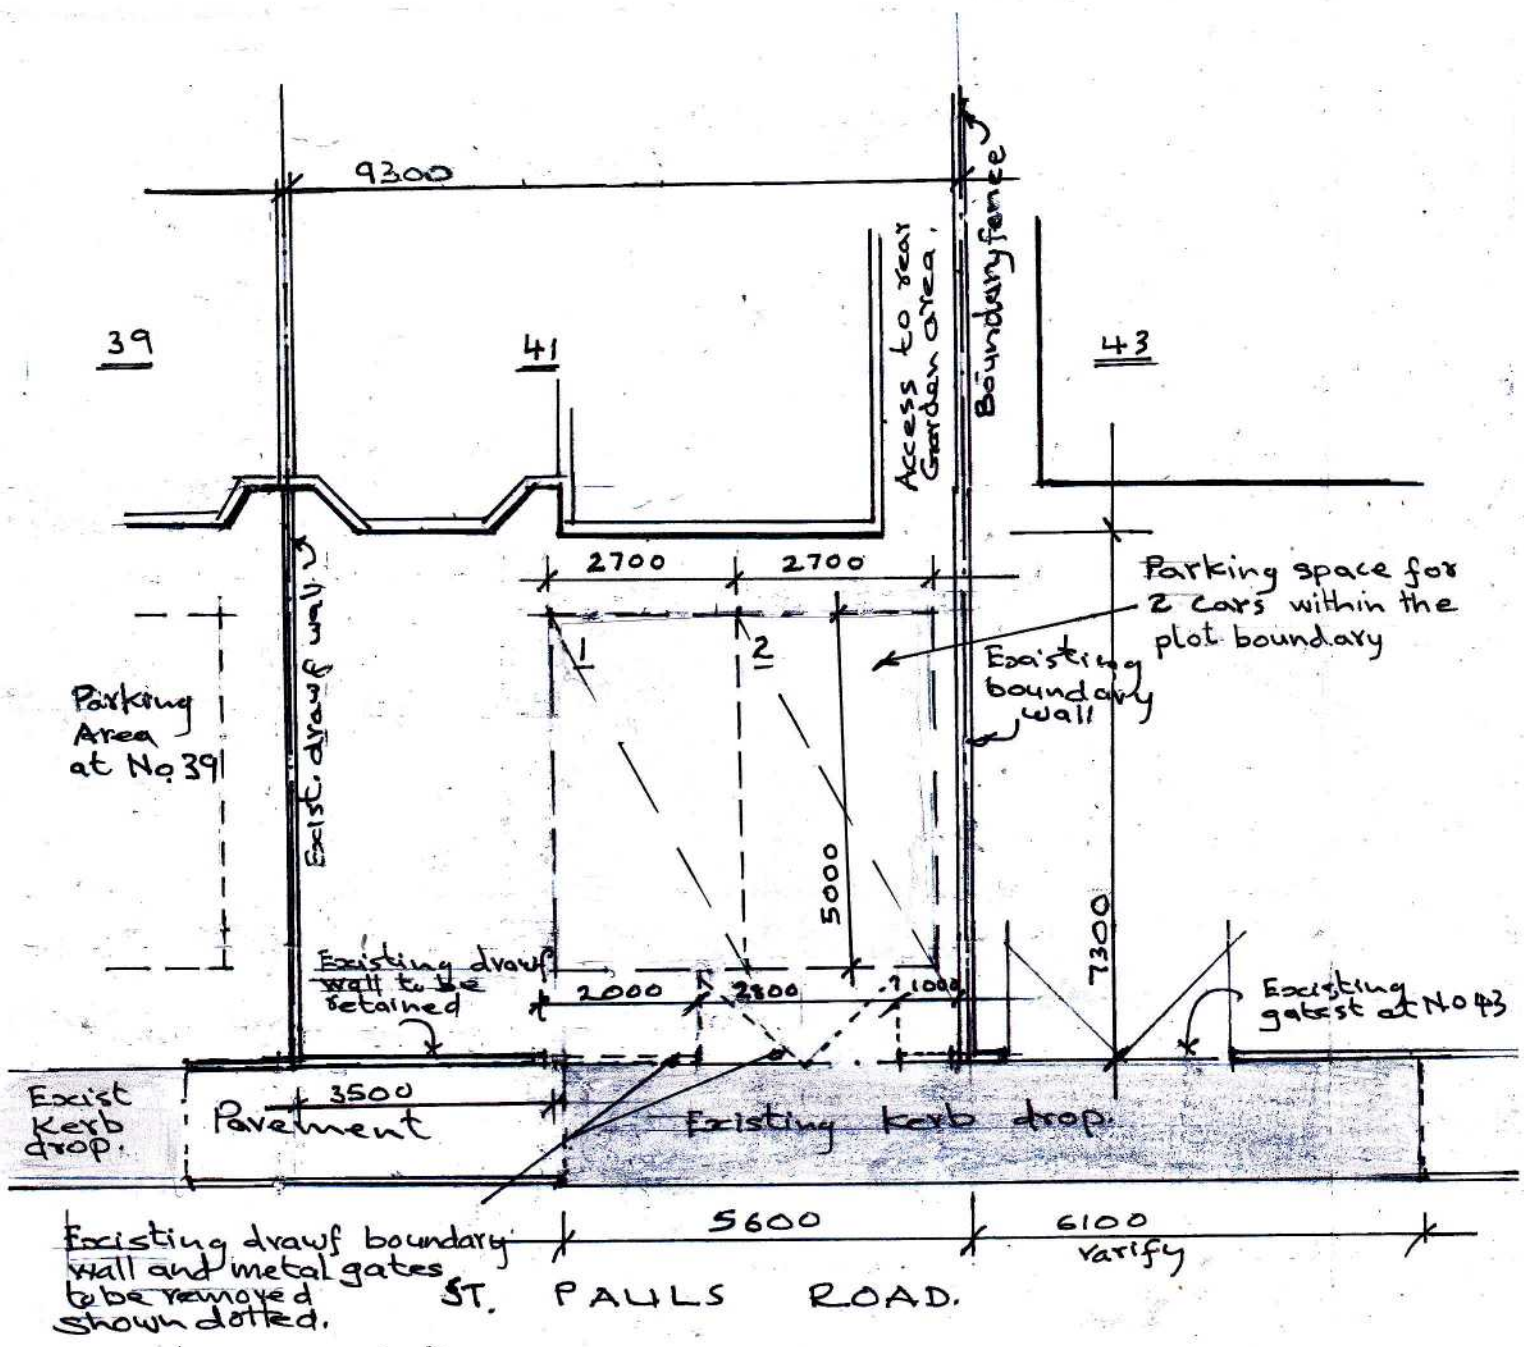 9300
Boundary fence
Access to rear
Garden area.
39
41
43
2700
2700
Parking space for
2 cars within the
plot boundary
1
2
Existing
boundary
wall
Exist. drawf wall
Parking
Area
at No 39
5000
7300
Existing drawf
wall to be
retained
2000
2800
1000
Existing
gatest at No 43
3500
Exist
Kerb
drop.
Pavement
Existing kerb drop.
5600
6100
varify
Existing drawf boundary
wall and metal gates
to be removed
shown dotted.
ST. PAULS ROAD.